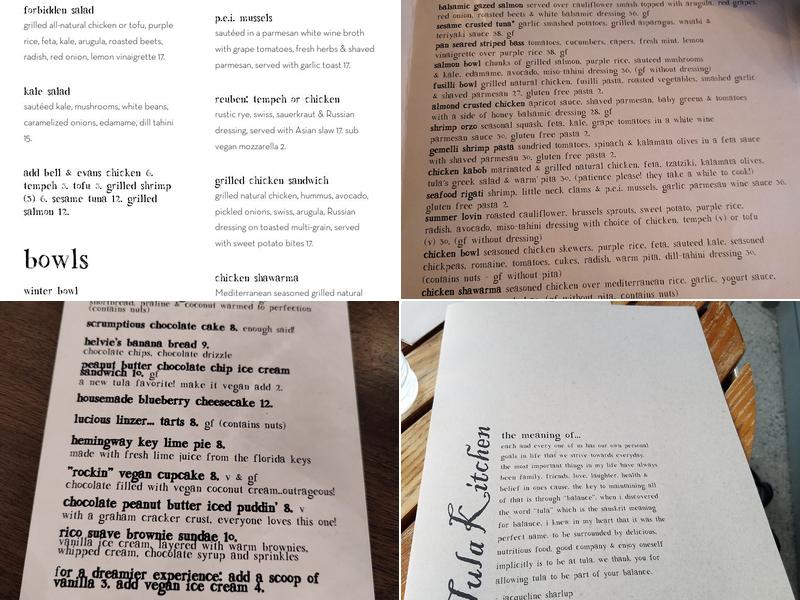 forbidden salad
grilled all-natural chicken or tofu, purple
rice, feta, kale, arugula, roasted beets,
radish, red onion, lemon vinaigrette 17.
kale salad
sautéed kale, mushrooms, white beans,
caramelized onions, edamame, dill tahini
15.
add bell & evans chicken 6.
tempeh 5. tofu 5. grilled shrimp
(5) 6. sesame tuna 12. grilled
salmon 12.
bowls
winter bowl
p.e.i. mussels
sautéed in a parmesan white wine broth
with grape tomatoes, fresh herbs & shaved
parmesan, served with garlic toast 17.
reuben: tempeh or chicken
rustic rye, swiss, sauerkraut & Russian
dressing, served with Asian slaw 17. sub
vegan mozzarella 2.
grilled chicken sandwich
grilled natural chicken, hummus, avocado,
pickled onions, swiss, arugula, Russian
dressing on toasted multi-grain, served
with sweet potato bites 17.
chicken shawarma
Mediterranean seasoned grilled natural
balsamic gazed salmon served over cauliflower smash topped with arugula, red grapes,
red onion, roasted beets & white balsamic dressing 36. gf
sesame crusted tuna* garlic smashed potatoes, grilled asparagus, wasabi &
teriyaki sauce 38. gf
pan seared striped bass tomatoes, cucumbers, capers, fresh mint, lemon
vinaigrette over purple rice 38. gf
salmon bowl chunks of grilled salmon, purple rice, sauteed mushrooms
& kale, edamame, avocado, miso-tahini dressing 36. (gf without dressing)
fusilli bowl grilled natural chicken, fusilli pasta, roasted vegetables, smashed garlic
& shaved parmesan 27. gluten free pasta 2.
almond crusted chicken apricot sauce, shaved parmesan, baby greens & tomatoes
with a side of honey balsamic dressing 28. gf
shrimp orzo seasonal squash, feta, kale, grape tomatoes in a white wine
parmesan sauce 30. gluten free pasta 2.
gemelli shrimp pasta sundried tomatoes, spinach & kalamata olives in a feta sauce
with shaved parmesan 30. gluten free pasta 2.
chicken kabob marinated & grilled natural chicken, feta, tzatziki, kalamata olives,
tula's greek salad & warm pita 30. (patience please! they take a while to cook!)
seafood rigati shrimp, little neck clams & p.e.i. mussels, garlic parmesan wine sauce 36.
gluten free pasta 2.
summer lovin roasted cauliflower, brussels sprouts, sweet potato, purple rice,
radish, avocado, miso-tahini dressing with choice of chicken, tempeh (v) or tofu
(v) 30. (gf without dressing)
chicken bowl seasoned chicken skewers, purple rice, feta, sauteed kale, seasoned
chickpeas, romaine, tomatoes, cukes, radish, warm pita, dill-tahini dressing 30.
(contains nuts - gf without pita)
chicken shawarma seasoned chicken over mediterranean rice, garlic, yogurt sauce,
shortbread, praline & coconut warmed to perfection
(contains nuts)
scrumptious chocolate cake 8. enough said!
helvie's banana bread 9.
chocolate chips, chocolate drizzle
peanut butter chocolate chip ice cream
sandwich 10. gf
a new tula favorite! make it vegan add 2.
housemade blueberry cheesecake 12.
lucious linzer... tarts 8. gf (contains nuts)
hemingway key lime pie 8.
made with fresh lime juice from the florida keys
"rockin" vegan cupcake 8. v & gf
chocolate filled with vegan coconut cream..outrageous!
chocolate peanut butter iced puddin' 8. v
with a graham cracker crust, everyone loves this one!
rico suave brownie sundae 10.
vanilla ice cream, layered with warm brownies,
whipped cream, chocolate syrup and sprinkles
for a dreamier experience: add a scoop of
vanilla 3. add vegan ice cream 4.
Tula Kitchen
the meaning of...
each and every one of us has our own personal
goals in life that we strive towards everyday.
the most important things in my life have always
been family, friends, love, laughter, health &
belief in ones cause. the key to maintaining all
of that is through "balance". when i discovered
the word "tula" which is the sanskrit meaning
for balance, i knew in my heart that it was the
perfect name. to be surrounded by delicious,
nutritious food, good company & enjoy oneself
implicitly is to be at tula. we thank you for
allowing tula to be part of your balance.
- jacqueline sharlup